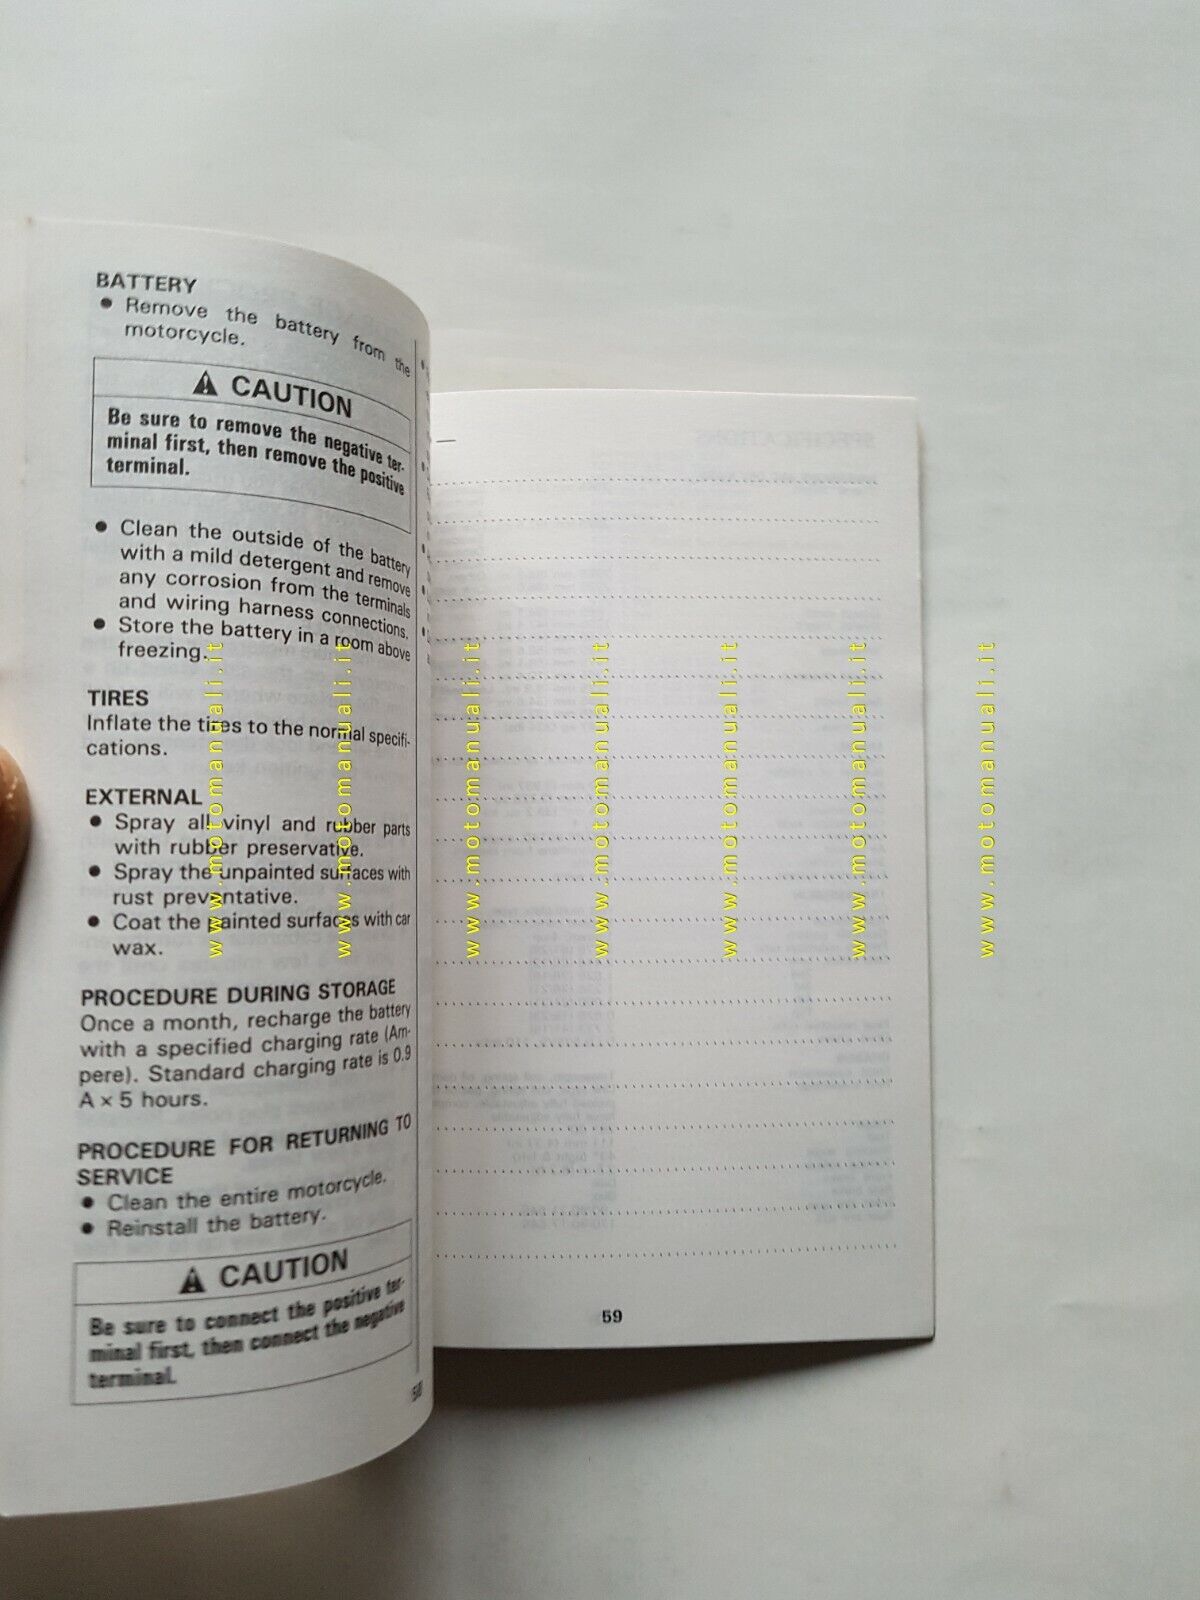 BATTERY
● Remove the battery from the
motorcycle.
⚠ CAUTION
Be sure to remove the negative ter-
minal first, then remove the positive
terminal.
● Clean the outside of the battery
with a mild detergent and remove
any corrosion from the terminals
and wiring harness connections.
● Store the battery in a room above
freezing.
TIRES
Inflate the tires to the normal specifi-
cations.
EXTERNAL
● Spray all vinyl and rubber parts
with rubber preservative.
● Spray the unpainted surfaces with
rust preventative.
● Coat the painted surfaces with car
wax.
PROCEDURE DURING STORAGE
Once a month, recharge the battery
with a specified charging rate (Am-
pere). Standard charging rate is 0.9
A × 5 hours.
PROCEDURE FOR RETURNING TO
SERVICE
● Clean the entire motorcycle.
● Reinstall the battery.
⚠ CAUTION
Be sure to connect the positive ter-
minal first, then connect the negative
terminal.
59
www.motomanuali.it
www.motomanuali.it
www.motomanuali.it
www.motomanuali.it
www.motomanuali.it
www.motomanuali.it
www.motomanuali.it